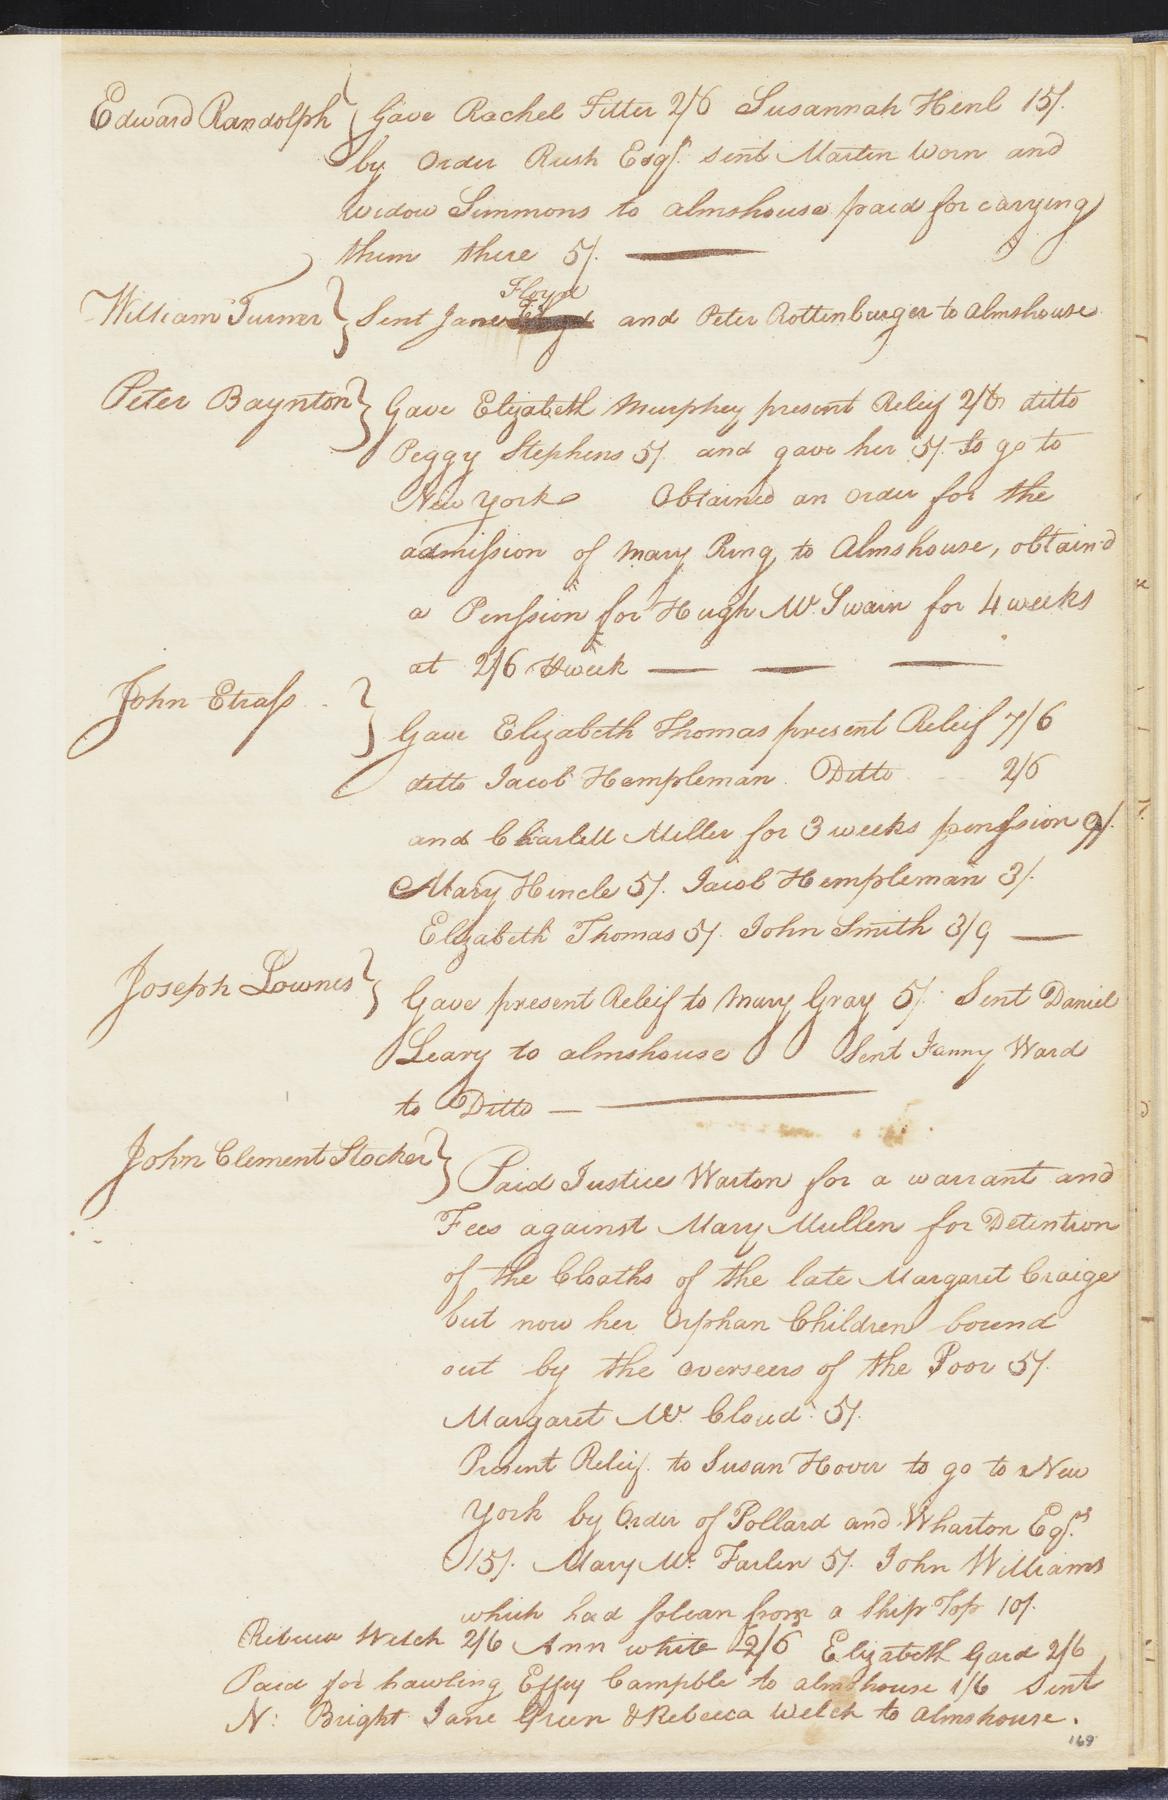 Edward Randolph } Gave Rachel Fitter 2/6 Susannah Henl 15/.
by order Rush Esqr. sent Martin Worn and
widow Simmons to almshouse paid for carrying
them there 5/. —
Floyd
William Turner } Sent Jane and Peter Rottenburger to Almshouse
Peter Baynton } Gave Elizabeth Murphey present Releif 2/6 ditto
Peggy Stephens 5/. and gave her 5/. to go to
New York Obtained an order for the
admission of Mary Ring to Almshouse, obtain'd
a Penssion for Hugh Mc. Swain for 4 weeks
at 2/6 ⅌ week — — —
John Etrass } Gave Elizabeth Thomas present Releif 7/6
ditto Jacob Hempleman Ditto 2/6
and Charlett Miller for 3 weeks penssion 9/.
Mary Hincle 5/. Jacob Hempleman 3/.
Elizabeth Thomas 5/. John Smith 3/9 —
Joseph Lownes } Gave present Releif to Mary Gray 5/. Sent Daniel
Leary to almshouse Sent Fanny Ward
to Ditto — —
John Clement Stocker } Paid Justice Warton for a warrant and
Fees against Mary Mullen for Detention
of the Cloaths of the late Margaret Craige
but now her Orphan Children bound
out by the overseers of the Poor 5/.
Margaret Mc. Cloud 5/.
Present Releif. to Susan Hover to go to New
York by Order of Pollard and Wharton Eqrs.
15/. Mary Mc. Farlin 5/. John Williams
which had folean from a Ship Top 10/.
Rebecca Welch 2/6 Ann white 2/6 Elizabeth Gard 2/6
Paid for hawling Effey Campble to almshouse 1/6 Sent
N: Bright Jane Green & Rebecca Welch to Almshouse.
169